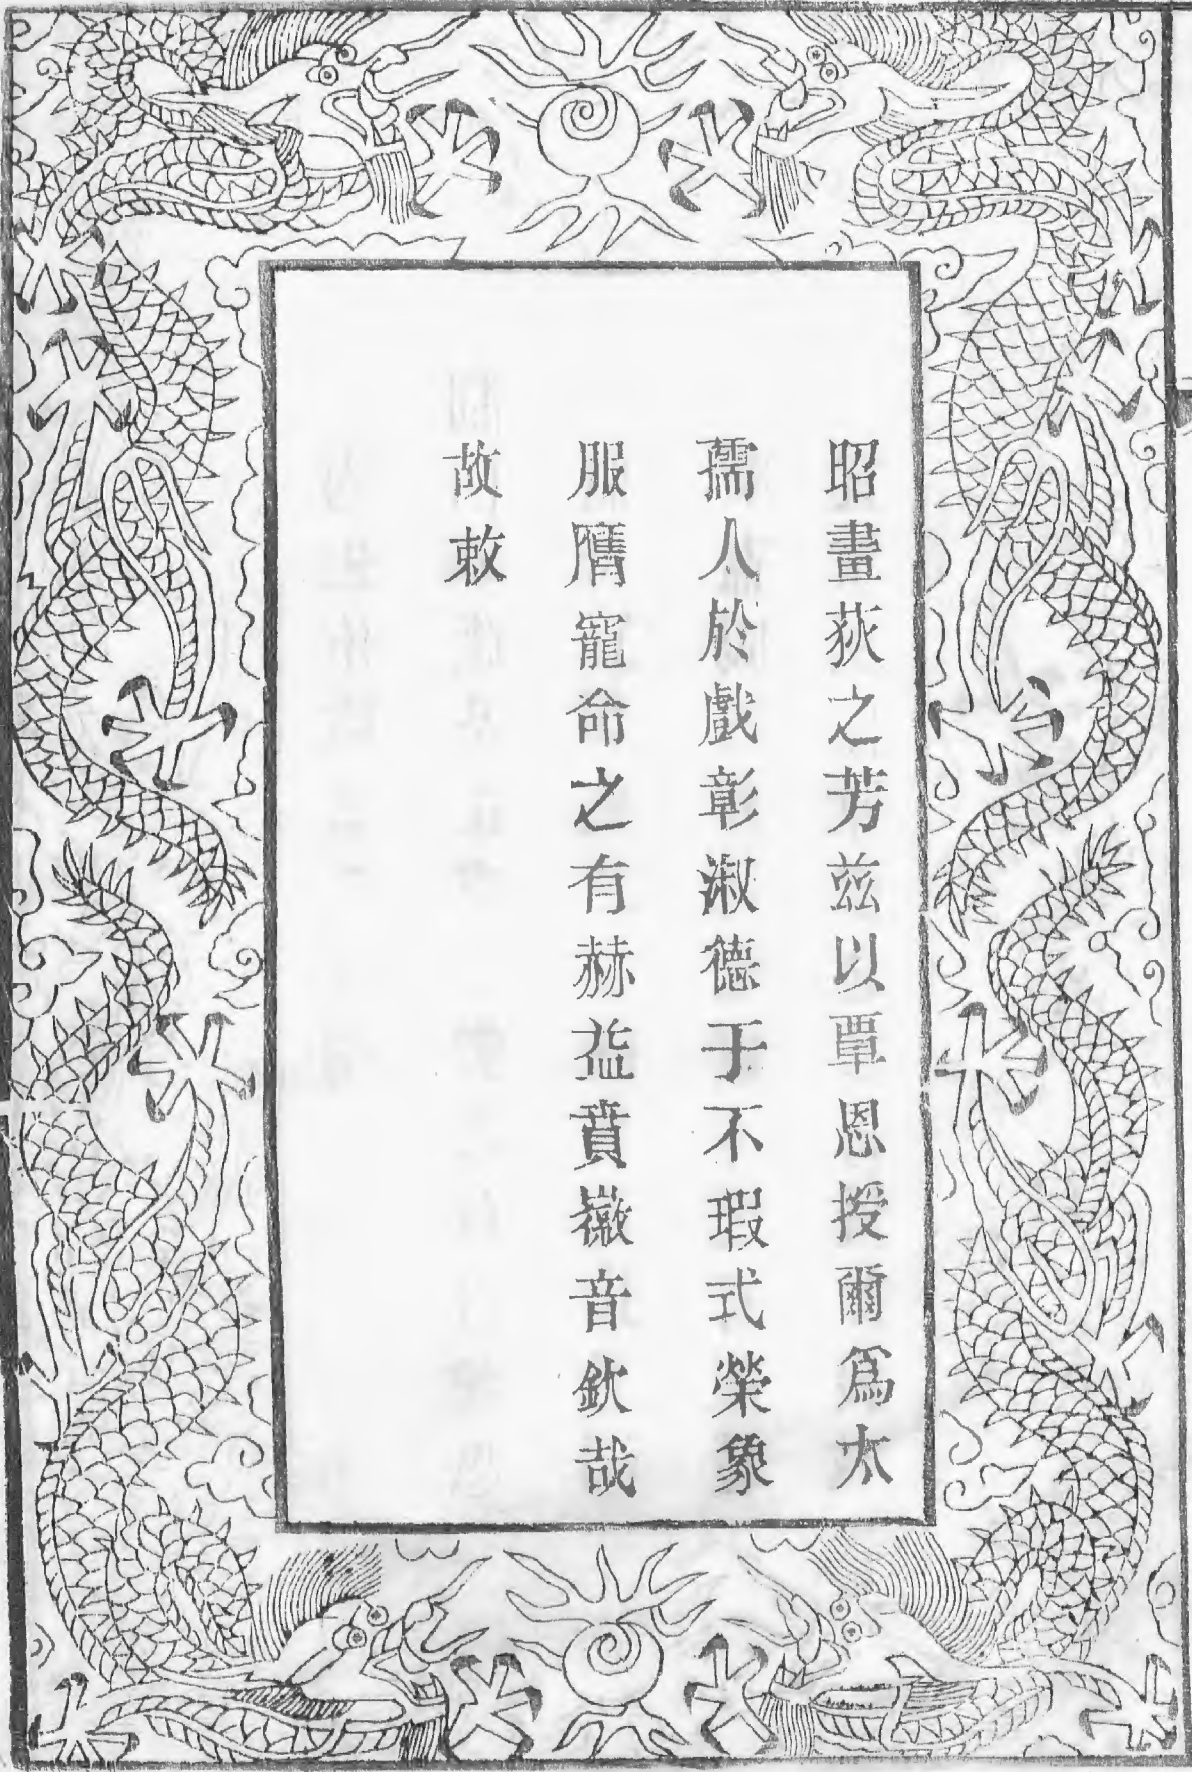 昭畫荻之芳茲以覃恩授爾爲太
孺人於戲彰淑德于不瑕式榮象
服膺寵命之有赫益賁徽音欽哉
故敕